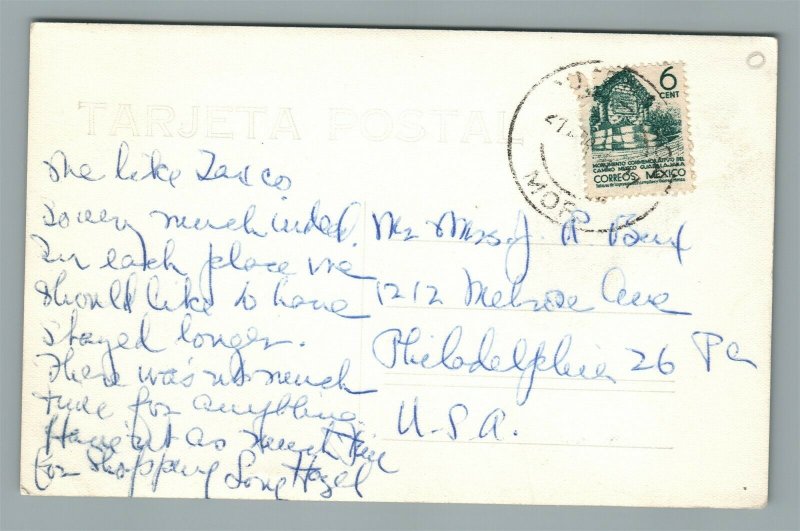 TARJETA POSTAL
6
CENT
MONUMENTO CONMEMORATIVO DEL
CAMINO MEXICO GUADALAJARA
CORREOS MEXICO
MOR
We like Taxco
so very much indeed.
In each place we
should like to have
stayed longer.
There was not much
time for anything.
Haven't as much time
for shopping Love Hazel
Mr Mrs. J. R
1212 Melrose Ave
Philadelphia 26 Pa
U.S.A.